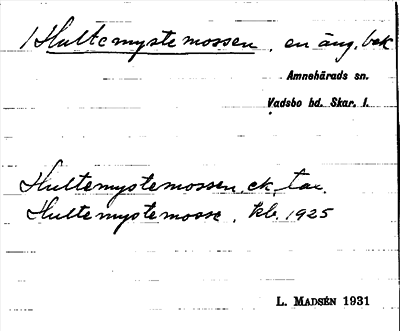 1 Hultemystemossen, en äng, bek
Amnehärads sn.
Vadsbo hd. Skar. l.
Hultemystemossen, ek, tax.
Hultemystemosse, kb. 1925
L. MADSÉN 1931